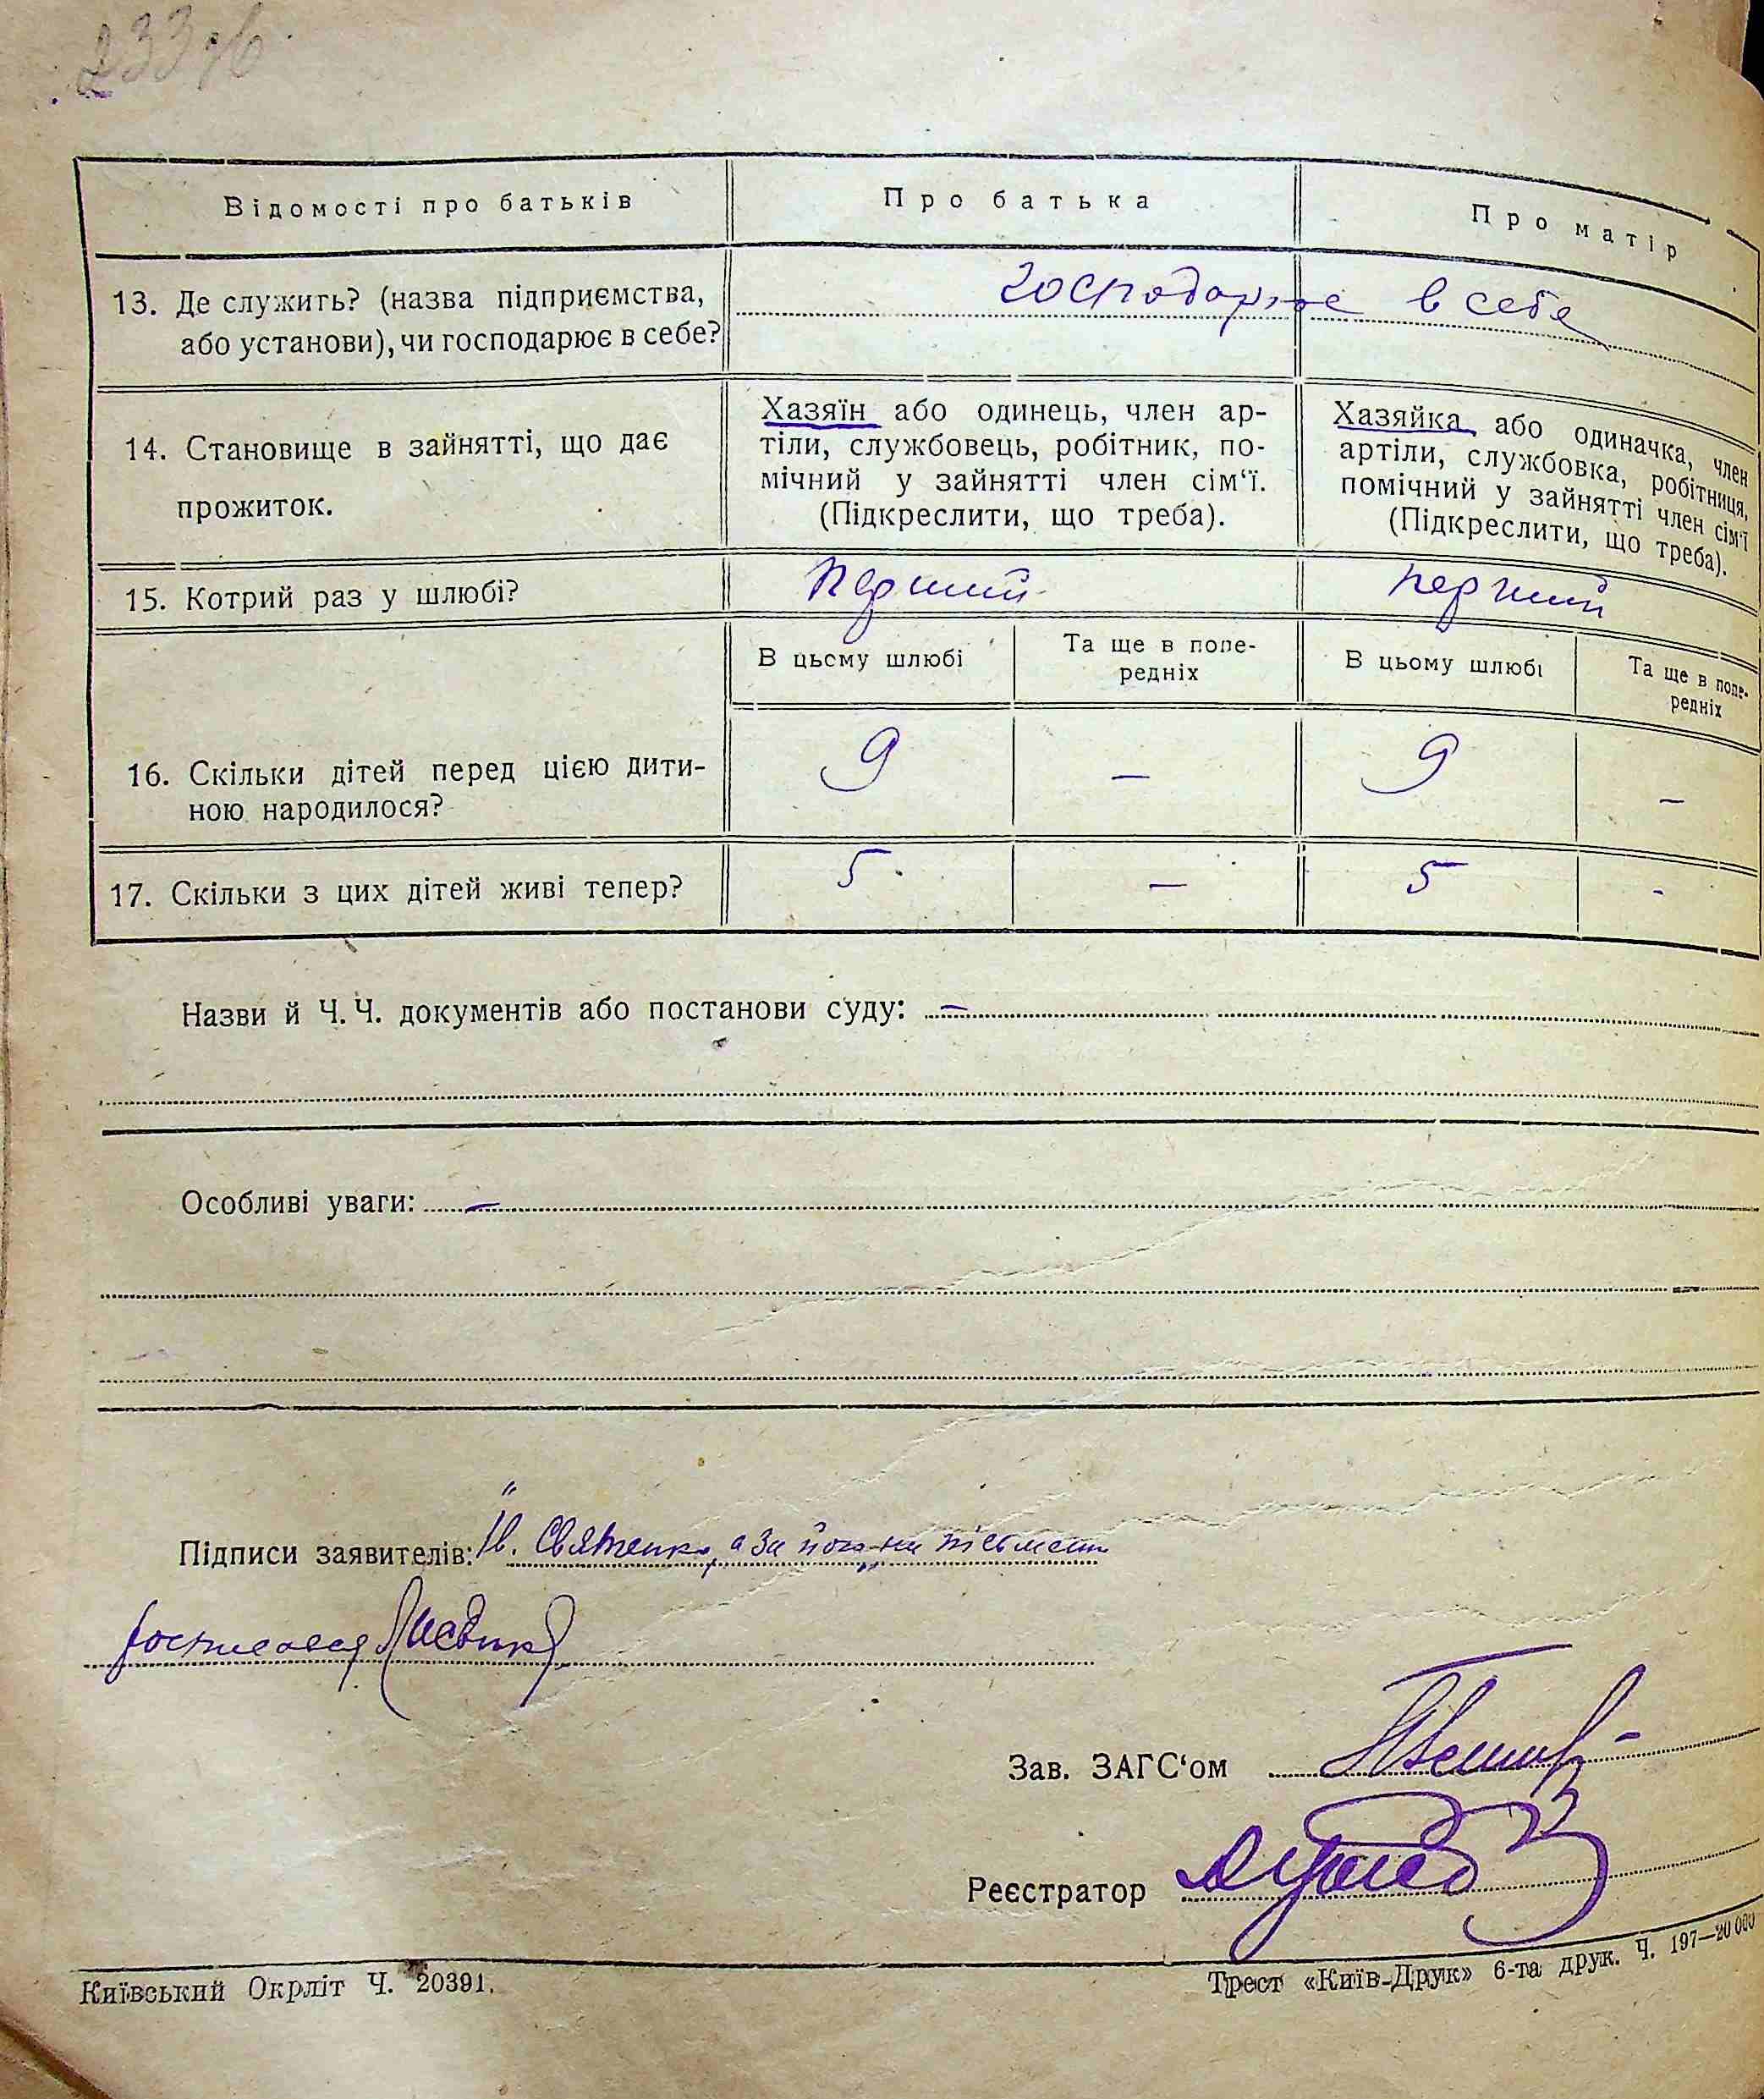 233 зв.
Відомості про батьків
Про батька
Про матір
13. Де служить? (назва підприємства,
або установи), чи господарює в себе?
господарює в себе
14. Становище в зайнятті, що дає
прожиток.
Хазяїн або одинець, член ар-
тіли, службовець, робітник, по-
мічний у зайнятті член сім'ї.
(Підкреслити, що треба).
Хазяйка або одиначка, член
артіли, службовка, робітниця,
помічний у зайнятті член сім'ї
(Підкреслити, що треба).
15. Котрий раз у шлюбі?
перший
перший
В цьому шлюбі
Та ще в попе-
редніх
В цьому шлюбі
Та ще в попе-
редніх
16. Скільки дітей перед цією дити-
ною народилося?
9
—
9
—
17. Скільки з цих дітей живі тепер?
5
—
5
-
Назви й Ч. Ч. документів або постанови суду: —
Особливі уваги: —
Підписи заявителів: Святенко, а за його не письмен
росписався
Зав. ЗАГС'ом
Реєстратор
Київський Окрліт Ч. 20391.
Трест «Київ-Друк» 6-та друк. Ч. 197—20 000